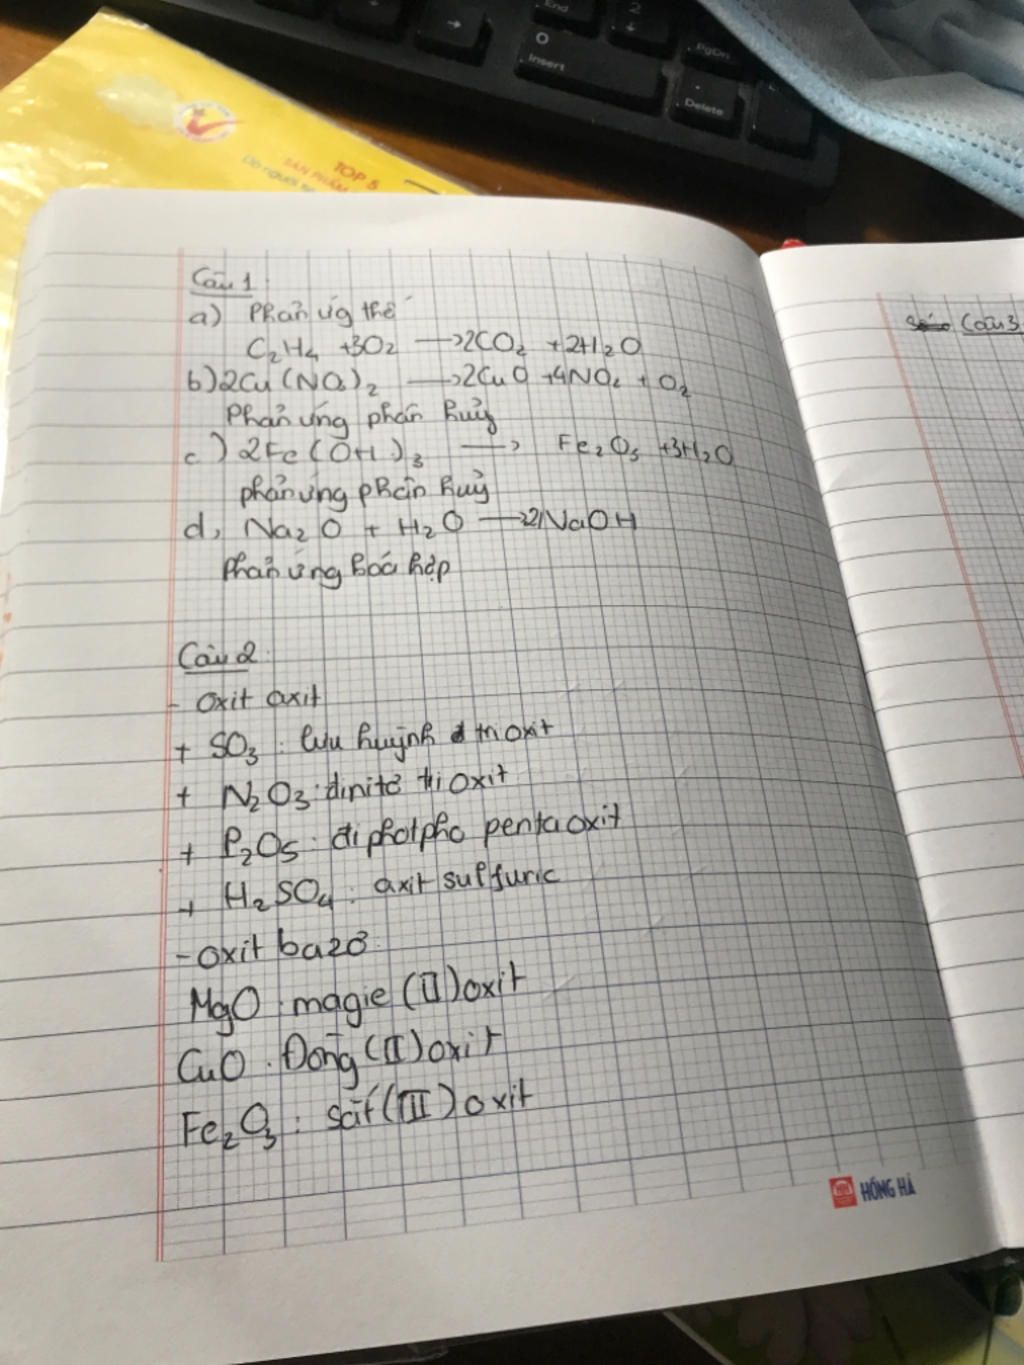 End
2
↓
PgDn
→
0
Insert
.
Delete
TOP 5
SẢN PHẨM
Câu 1:
a) Phản ứg thế
C₂H₄ +3O₂ → 2CO₂ +2H₂O
b) 2Cu(NO₃)₂ → 2CuO +4NO₂ + O₂
Phản ứng phân huỷ
c) 2Fe(OH)₃ → Fe₂O₃ +3H₂O
phản ứng phân huỷ
d, Na₂O + H₂O → 2NaOH
Phản ứng hoá hợp
Câu 2:
- Oxit axit
+ SO₃ : lưu huỳnh tri oxit
+ N₂O₃ : đinitơ tri oxit
+ P₂O₅ : điphotpho penta oxit
+ H₂SO₄ : axit sulfuric
- oxit bazơ
MgO : magie (II) oxit
CuO : Đồng (II) oxit
Fe₂O₃ : sắt (III) oxit
HỒNG HÀ
Câu 3